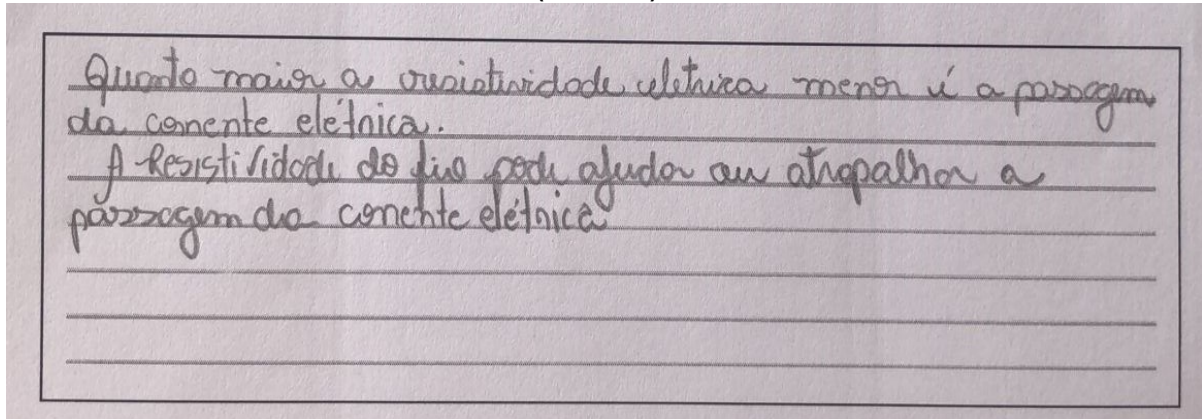 Quanto maior a resistividade eletrica menor é a passagem
da corrente elétrica.
A Resistividade do fio pode ajudar ou atrapalhar a
passagem da corrente elétrica